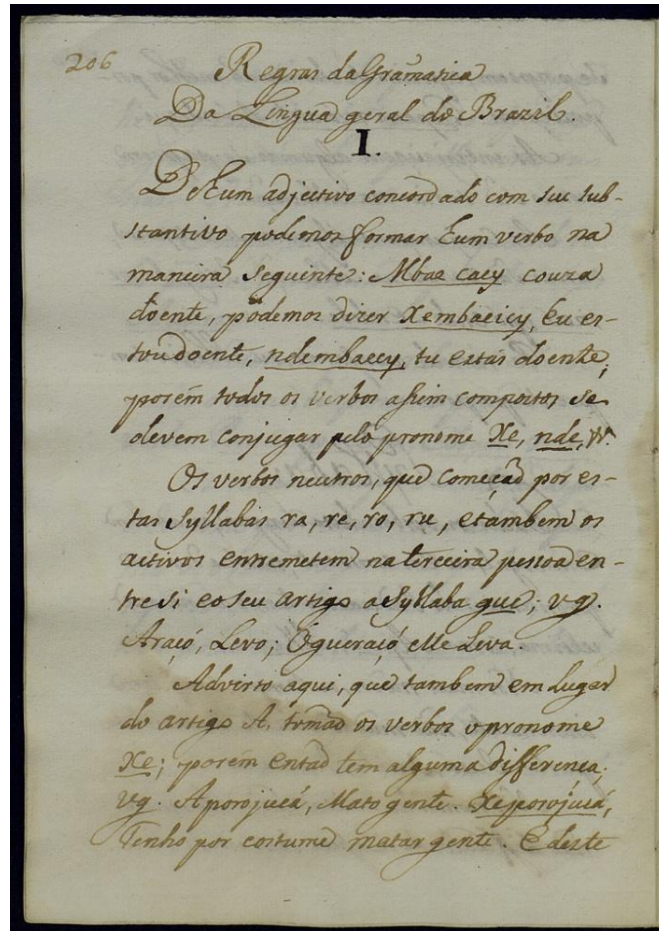 206
Regras da Gramatica
Da Lingua geral do Brazil.
I.
De hum adjectivo concordado com seu sub-
stantivo podemos formar hum verbo na
maneira seguinte: Mbae cacy couza
doente, podemos dizer Xembaeicy, Eu es-
tou doente, ndembaccy, tu estás doente;
porém todos os verbos assim compostos se
devem conjugar pelo pronome Xe, nde, &.
Os verbos neutros, que começaõ por es-
tas syllabas ra, re, ro, ru, e tambem os
activos entremetem na terceira pessoa en-
tre si e o seu artigo a syllaba gue; vg.
Araçó, Levo; Ogueraçó, elle Leva.
Advirto aqui, que tambem em lugar
do artigo A, tomaõ os verbos o pronome
Xe; porém entaõ tem alguma differença;
vg. Aporojucá, Mato gente. Xeporojucá,
Tenho por costume matar gente. E deste